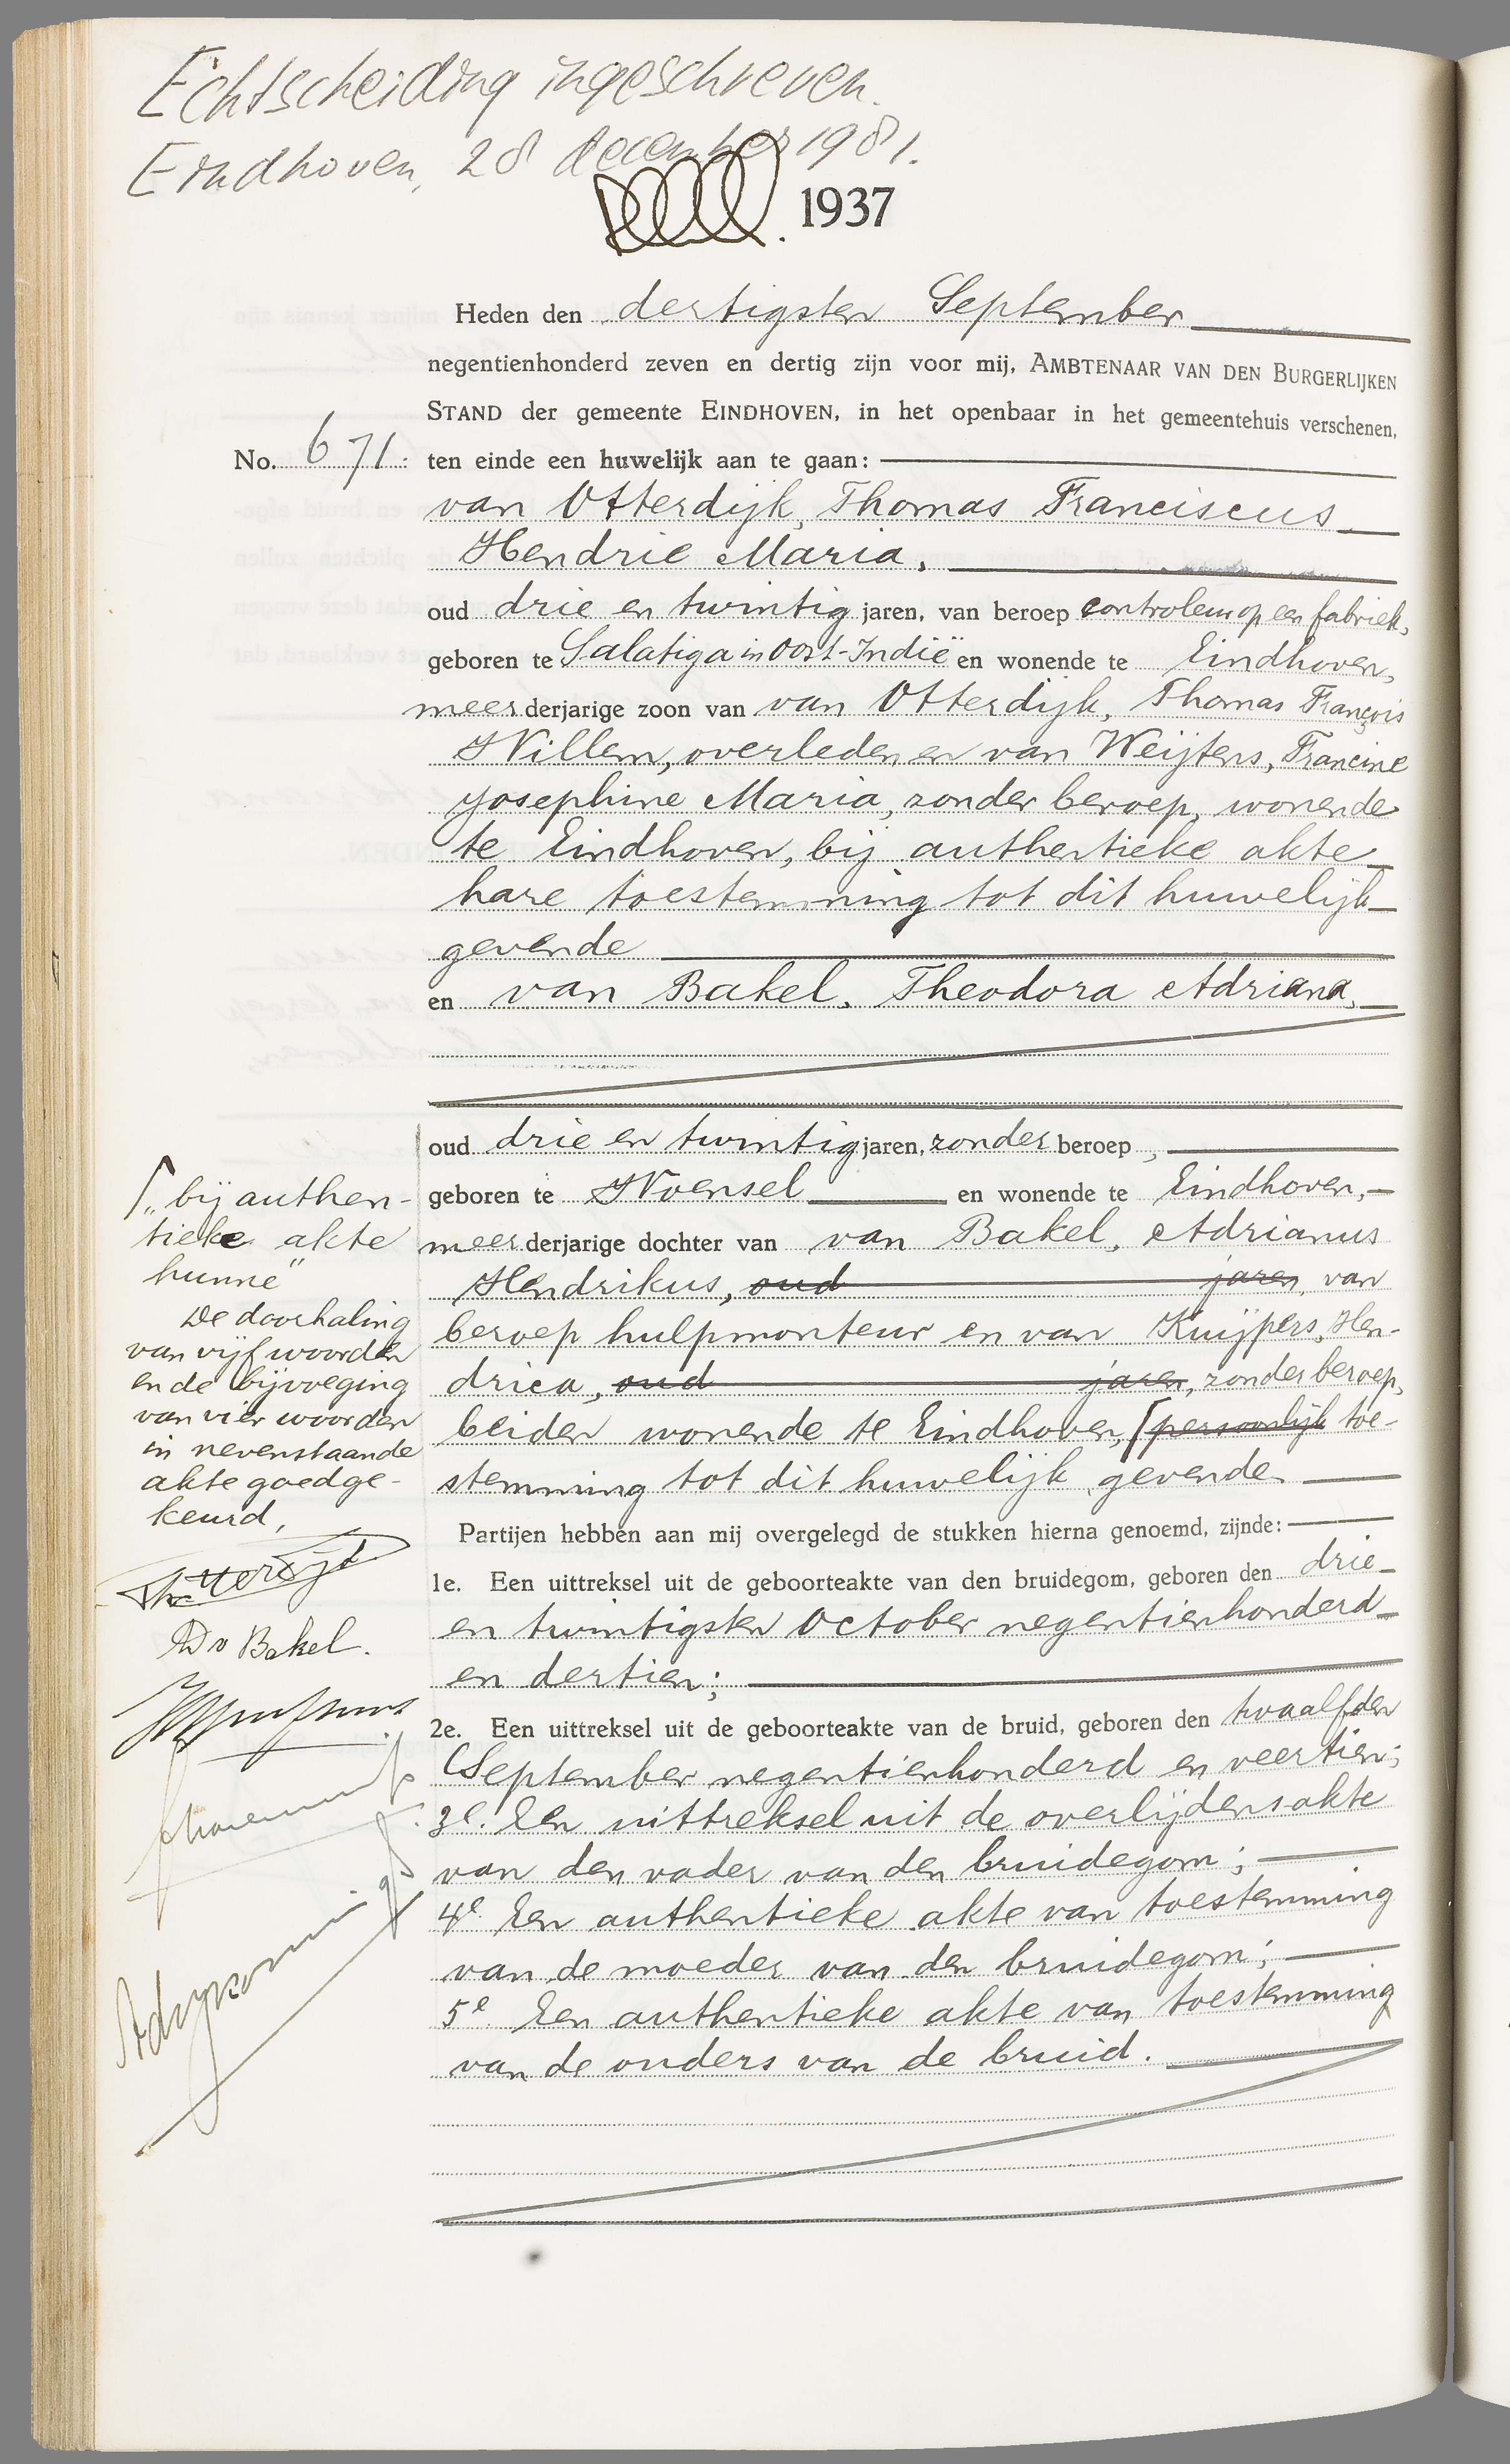 Echtscheiding ingeschreven.
Eindhoven, 28 december 1981.
1937
Heden den dertigsten September
negentienhonderd zeven en dertig zijn voor mij, AMBTENAAR VAN DEN BURGERLIJKEN
STAND der gemeente EINDHOVEN, in het openbaar in het gemeentehuis verschenen,
No. 671. ten einde een huwelijk aan te gaan:
van Otterdijk, Thomas Franciscus
Hendrie Maria,
oud drie en twintig jaren, van beroep controleur op een fabriek,
geboren te Salatiga in Oost-Indië en wonende te Eindhoven,
meerderjarige zoon van van Otterdijk, Thomas François
Willem, overleden en van Weijtens, Francine
Josephine Maria, zonder beroep, wonende
te Eindhoven, bij authentieke akte
hare toestemming tot dit huwelijk
gevende
en van Bakel, Theodora Adriana,
oud drie en twintig jaren, zonder beroep,
geboren te Woensel en wonende te Eindhoven,
meerderjarige dochter van van Bakel, Adrianus
Hendrikus, oud jaren, van
beroep hulpmonteur en van Kuijpers, Hen-
drica, oud jaren, zonder beroep,
beiden wonende te Eindhoven, ⌈persoonlijk toe-
stemming tot dit huwelijk gevende
Partijen hebben aan mij overgelegd de stukken hierna genoemd, zijnde:
1e. Een uittreksel uit de geboorteakte van den bruidegom, geboren den drie-
en twintigsten October negentienhonderd
en dertien;
2e. Een uittreksel uit de geboorteakte van de bruid, geboren den twaalfden
September negentienhonderd en veertien;
3e. Een uittreksel uit de overlijdensakte
van den vader van den bruidegom;
4e. Een authentieke akte van toestemming
van de moeder van den bruidegom;
5e. Een authentieke akte van toestemming
van de ouders van de bruid.
⌈„bij authen-
tieke akte
hunne"
De doorhaling
van vijf woorden
en de bijvoeging
van vier woorden
in nevenstaande
akte goedge-
keurd,
D v Bakel.